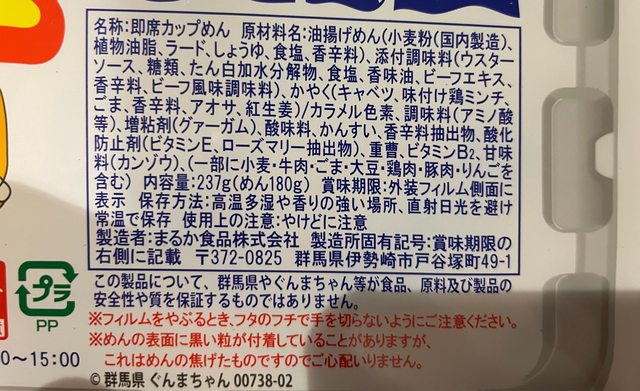 名称:即席カップめん 原材料名:油揚げめん(小麦粉(国内製造)、
植物油脂、ラード、しょうゆ、食塩、香辛料)、添付調味料(ウスター
ソース、糖類、たん白加水分解物、食塩、香味油、ビーフエキス、
香辛料、ビーフ風味調味料)、かやく(キャベツ、味付け鶏ミンチ、
ごま、香辛料、アオサ、紅生姜)/カラメル色素、調味料(アミノ酸
等)、増粘剤(グァーガム)、酸味料、かんすい、香辛料抽出物、酸化
防止剤(ビタミンE、ローズマリー抽出物)、重曹、ビタミンB2、甘味
料(カンゾウ)、(一部に小麦・牛肉・ごま・大豆・鶏肉・豚肉・りんごを
含む) 内容量:237g(めん180g) 賞味期限:外装フィルム側面に
表示 保存方法:高温多湿や香りの強い場所、直射日光を避け
常温で保存 使用上の注意:やけどに注意
製造者:まるか食品株式会社 製造所固有記号:賞味期限の
右側に記載 〒372-0825 群馬県伊勢崎市戸谷塚町49-1
この製品について、群馬県やぐんまちゃん等が食品、原料及び製品の
安全性や質を保証するものではありません。
プラ
PP
※フィルムをやぶるとき、フタのフチで手を切らないようにご注意ください。
※めんの表面に黒い粒が付着していることがありますが、
これはめんの焦げたものですのでご心配いりません。
0〜15:00
© 群馬県 ぐんまちゃん 00738-02